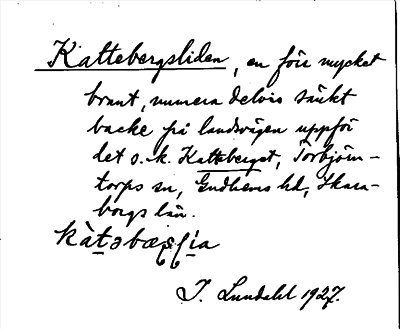 Kattebergsliden, en förr mycket
brant, numera delvis sänkt
backe på landsvägen uppför
det s. k. Katteberget, Torbjörn-
torps sn, Gudhems hd, Skara-
borgs län.
I. Lundahl 1927.